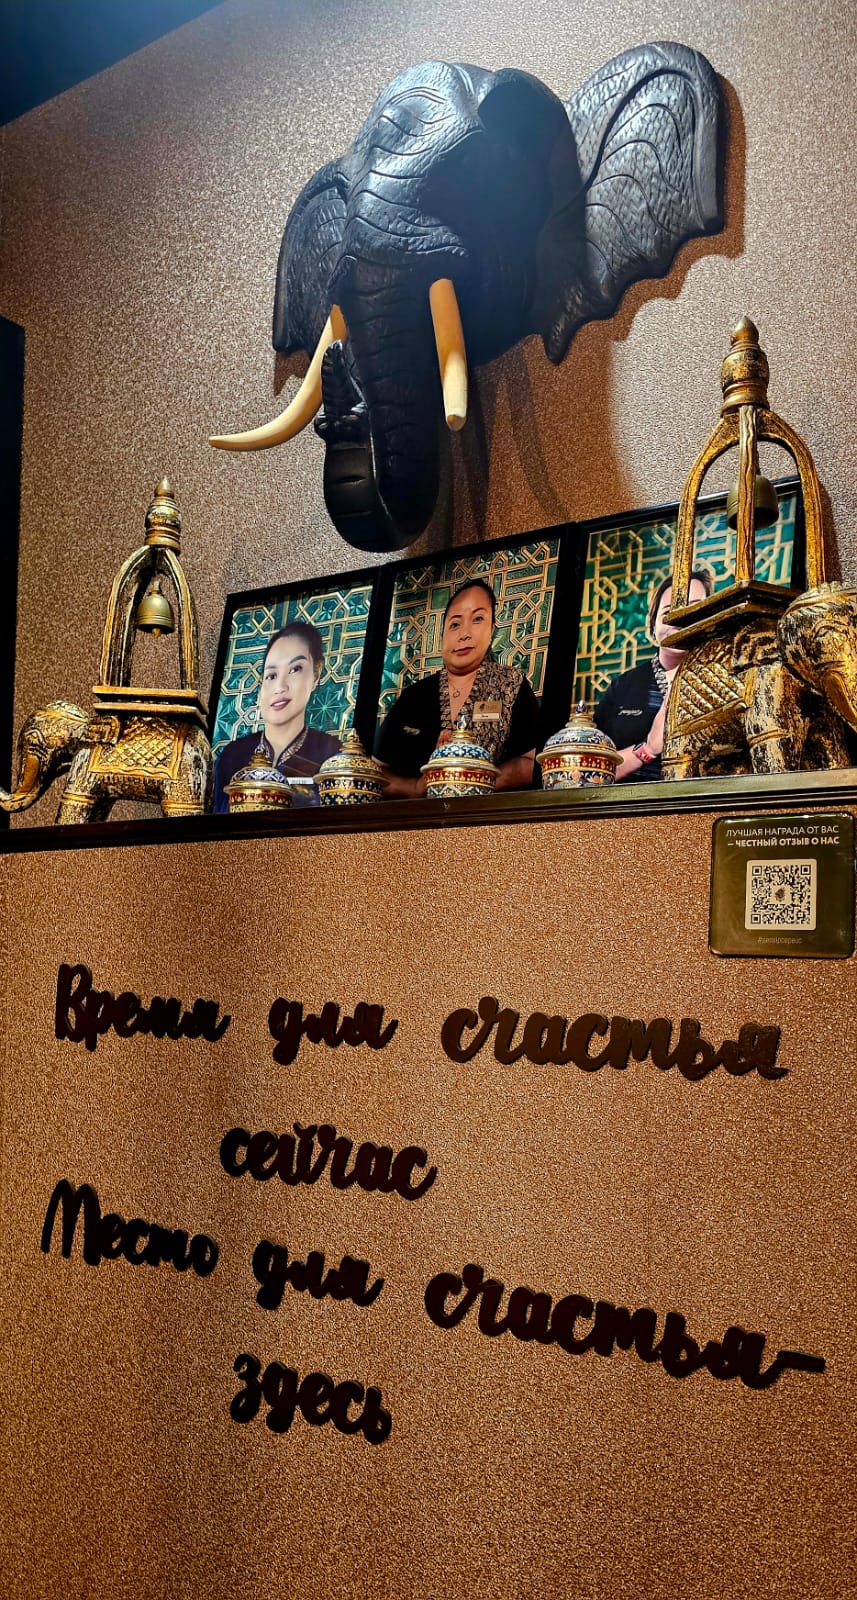 ЛУЧШАЯ НАГРАДА ОТ ВАС
— ЧЕСТНЫЙ ОТЗЫВ О НАС
Время для счастья
сейчас
Место для счастья-
здесь